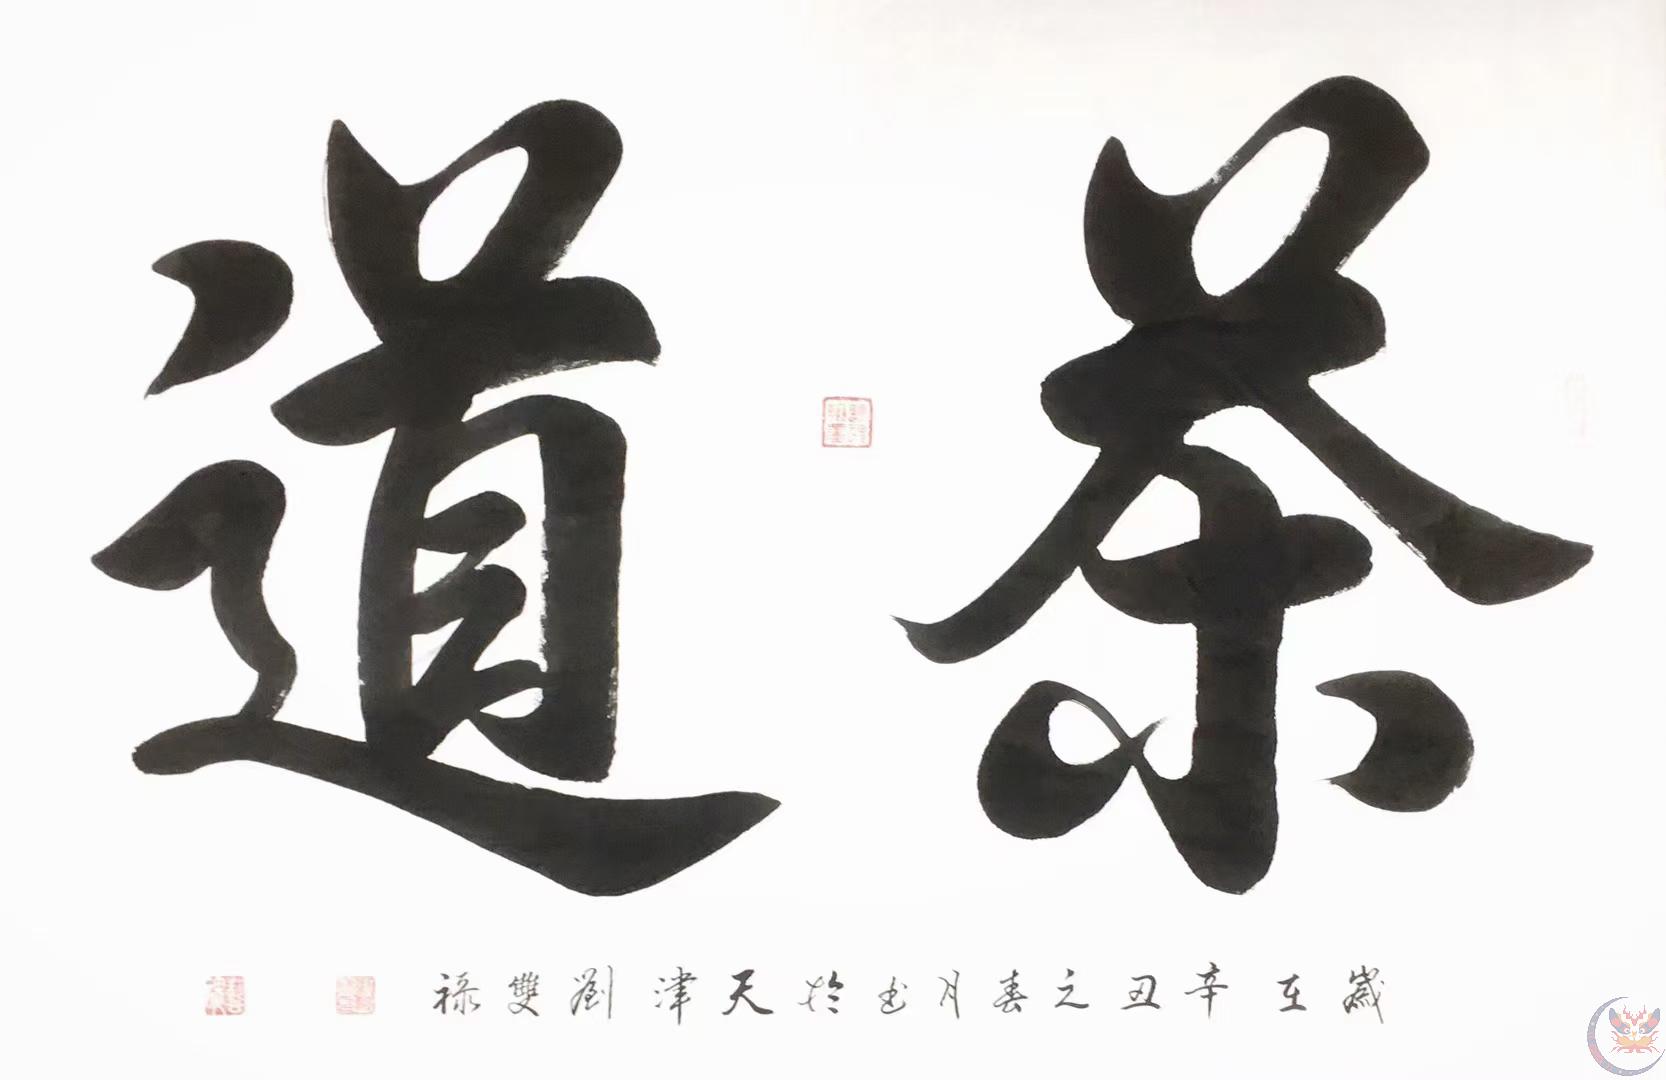 茶道
歲在辛丑之春月书於天津劉雙禄